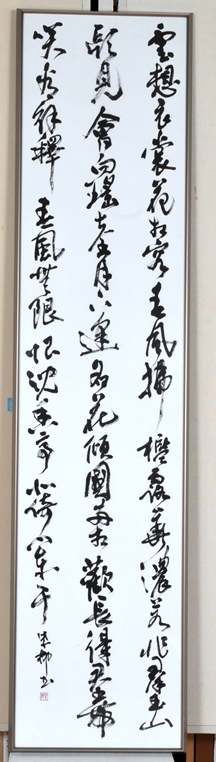 雲想衣裳花想容春風拂檻露華濃若非群玉山
頭見會向瑤台月下逢名花傾國兩相歡長得君王帶
笑看解釋春風無限恨沈香亭北倚闌干 書